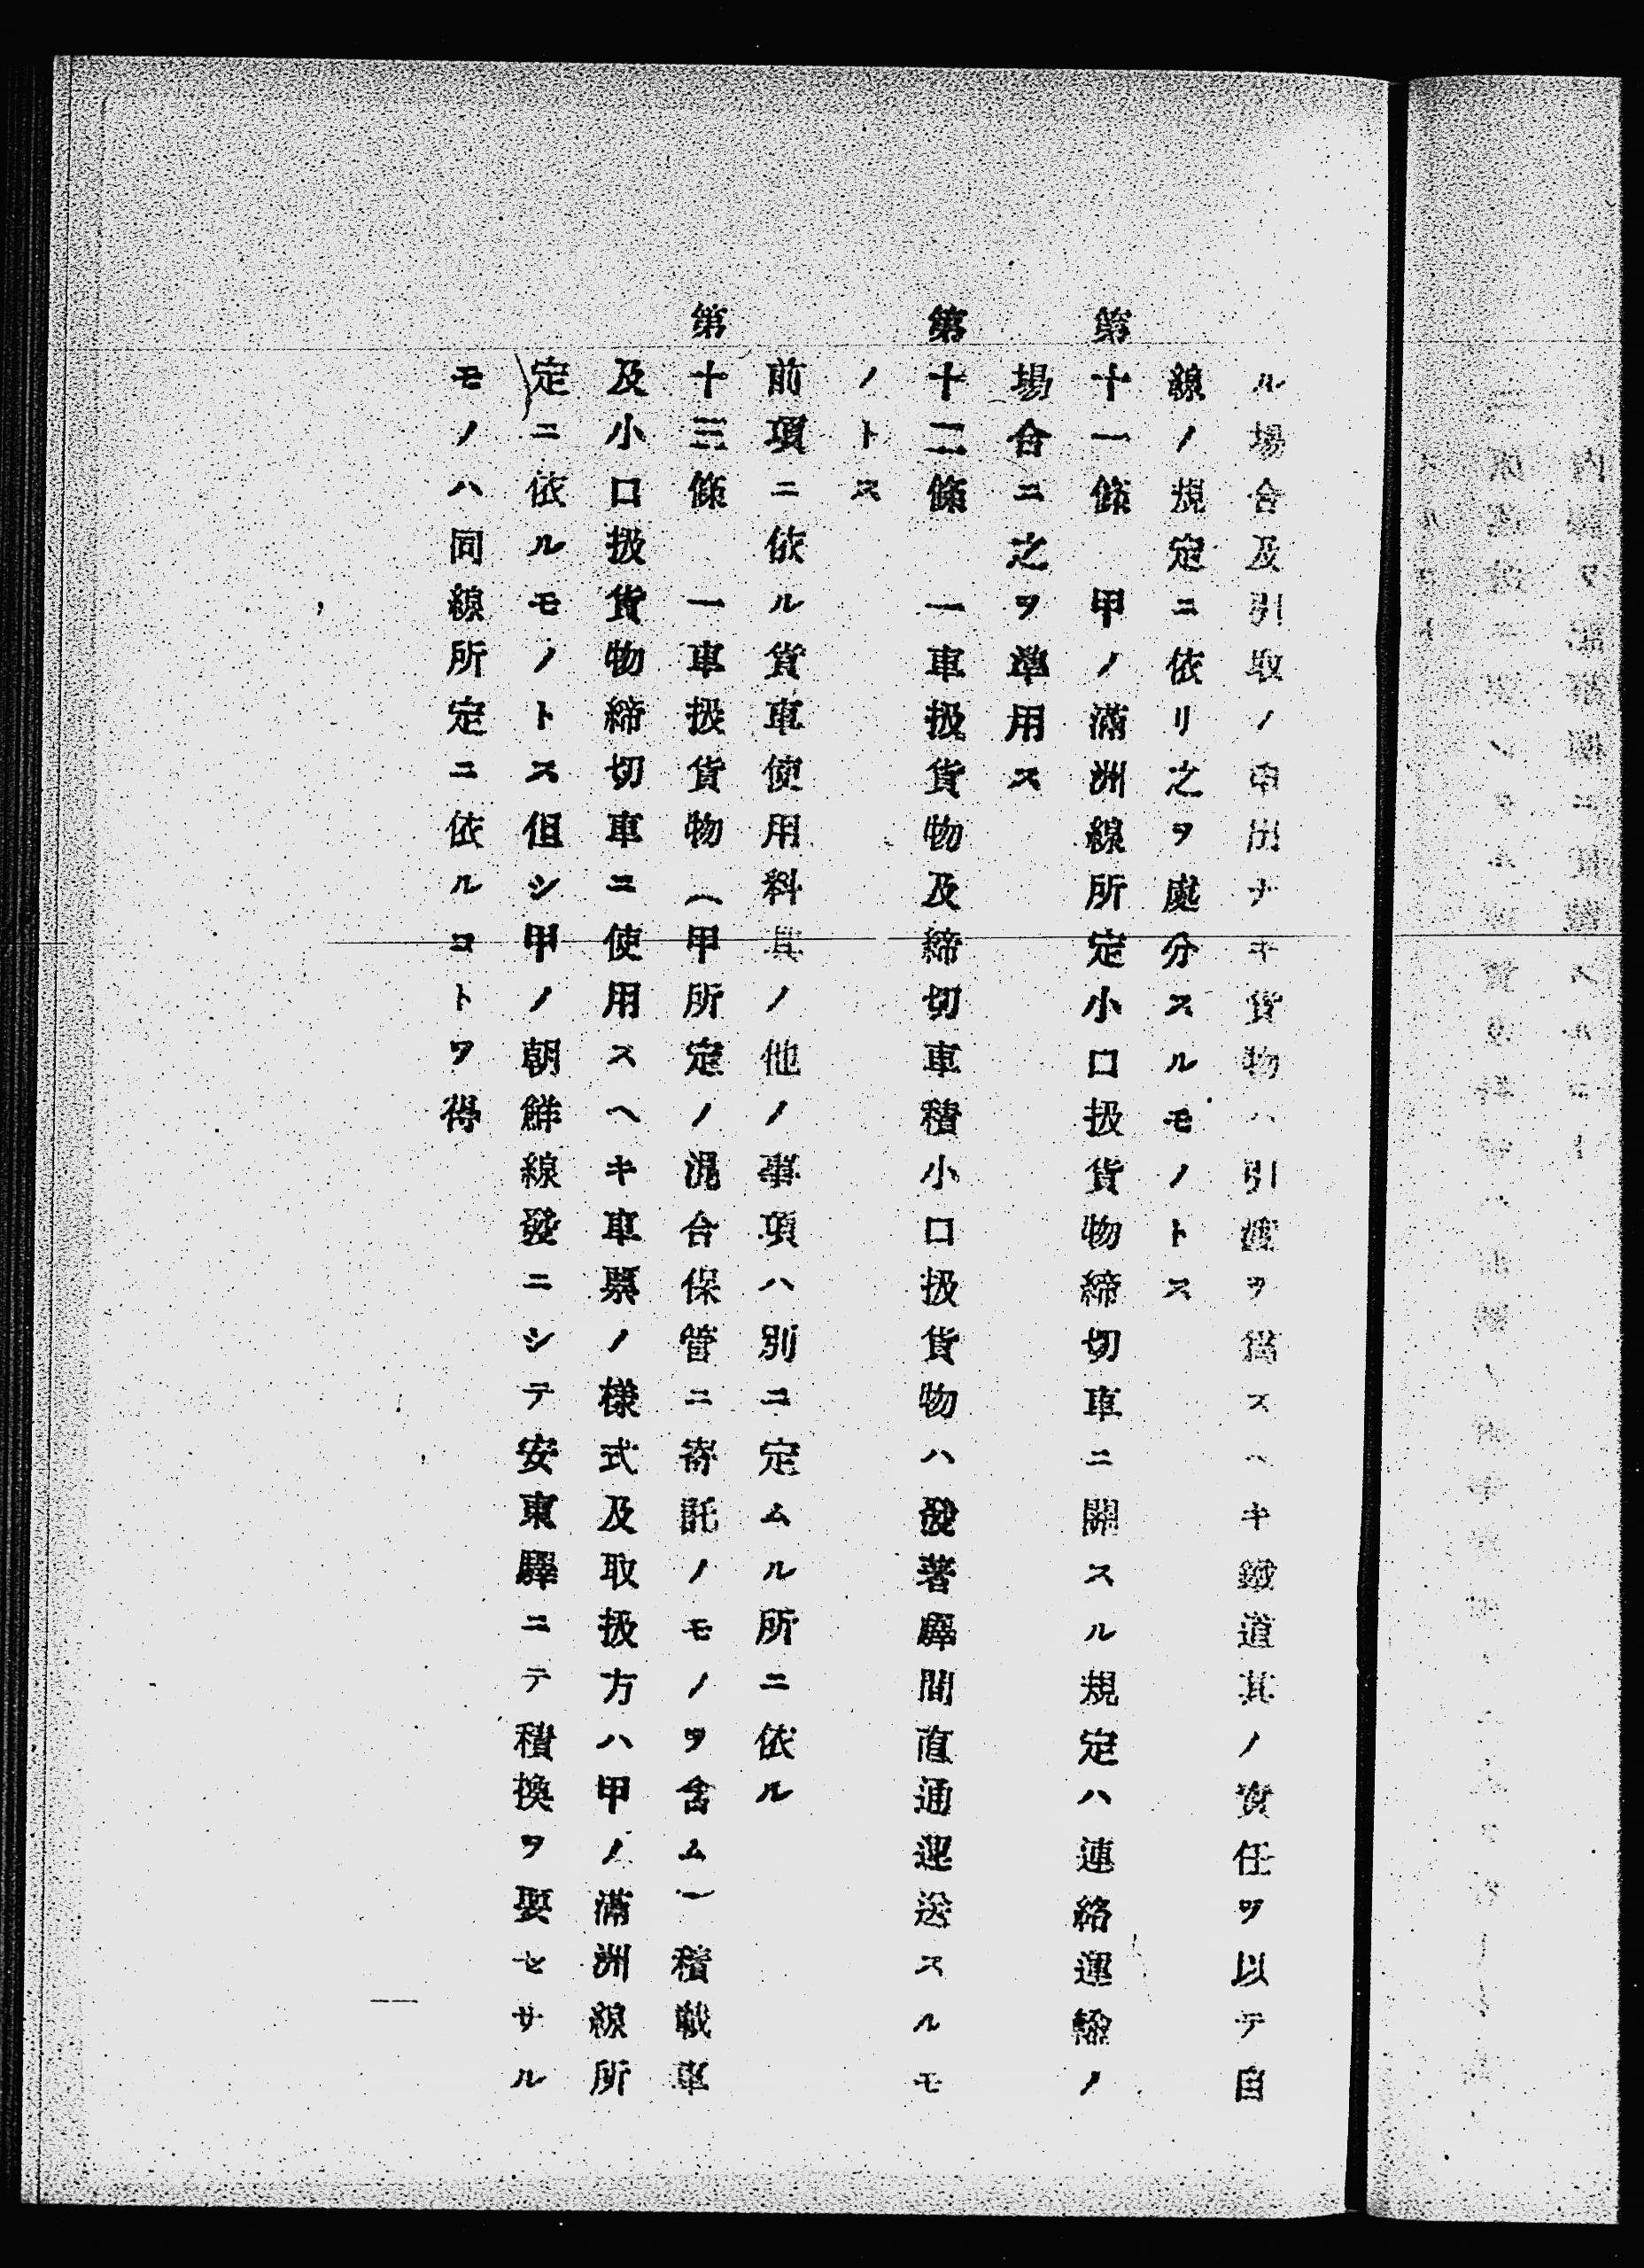 ル場合及引取ノ申出ナキ貨物ハ引渡ヲ爲スヘキ鐵道其ノ責任ヲ以テ自
線ノ規定ニ依リ之ヲ處分スルモノトス
第十一條　甲ノ滿洲線所定小口扱貨物締切車ニ關スル規定ハ連絡運輸ノ
場合ニ之ヲ準用ス
第十二條　一車扱貨物及締切車積小口扱貨物ハ發著驛間直通運送スルモ
ノトス
前項ニ依ル貨車使用料其ノ他ノ事項ハ別ニ定ムル所ニ依ル
第十三條　一車扱貨物（甲所定ノ混合保管ニ寄託ノモノヲ含ム）積載車
及小口扱貨物締切車ニ使用スヘキ車票ノ樣式及取扱方ハ甲ノ滿洲線所
定ニ依ルモノトス但シ甲ノ朝鮮線發ニシテ安東驛ニテ積換ヲ要セサル
モノハ同線所定ニ依ルコトヲ得